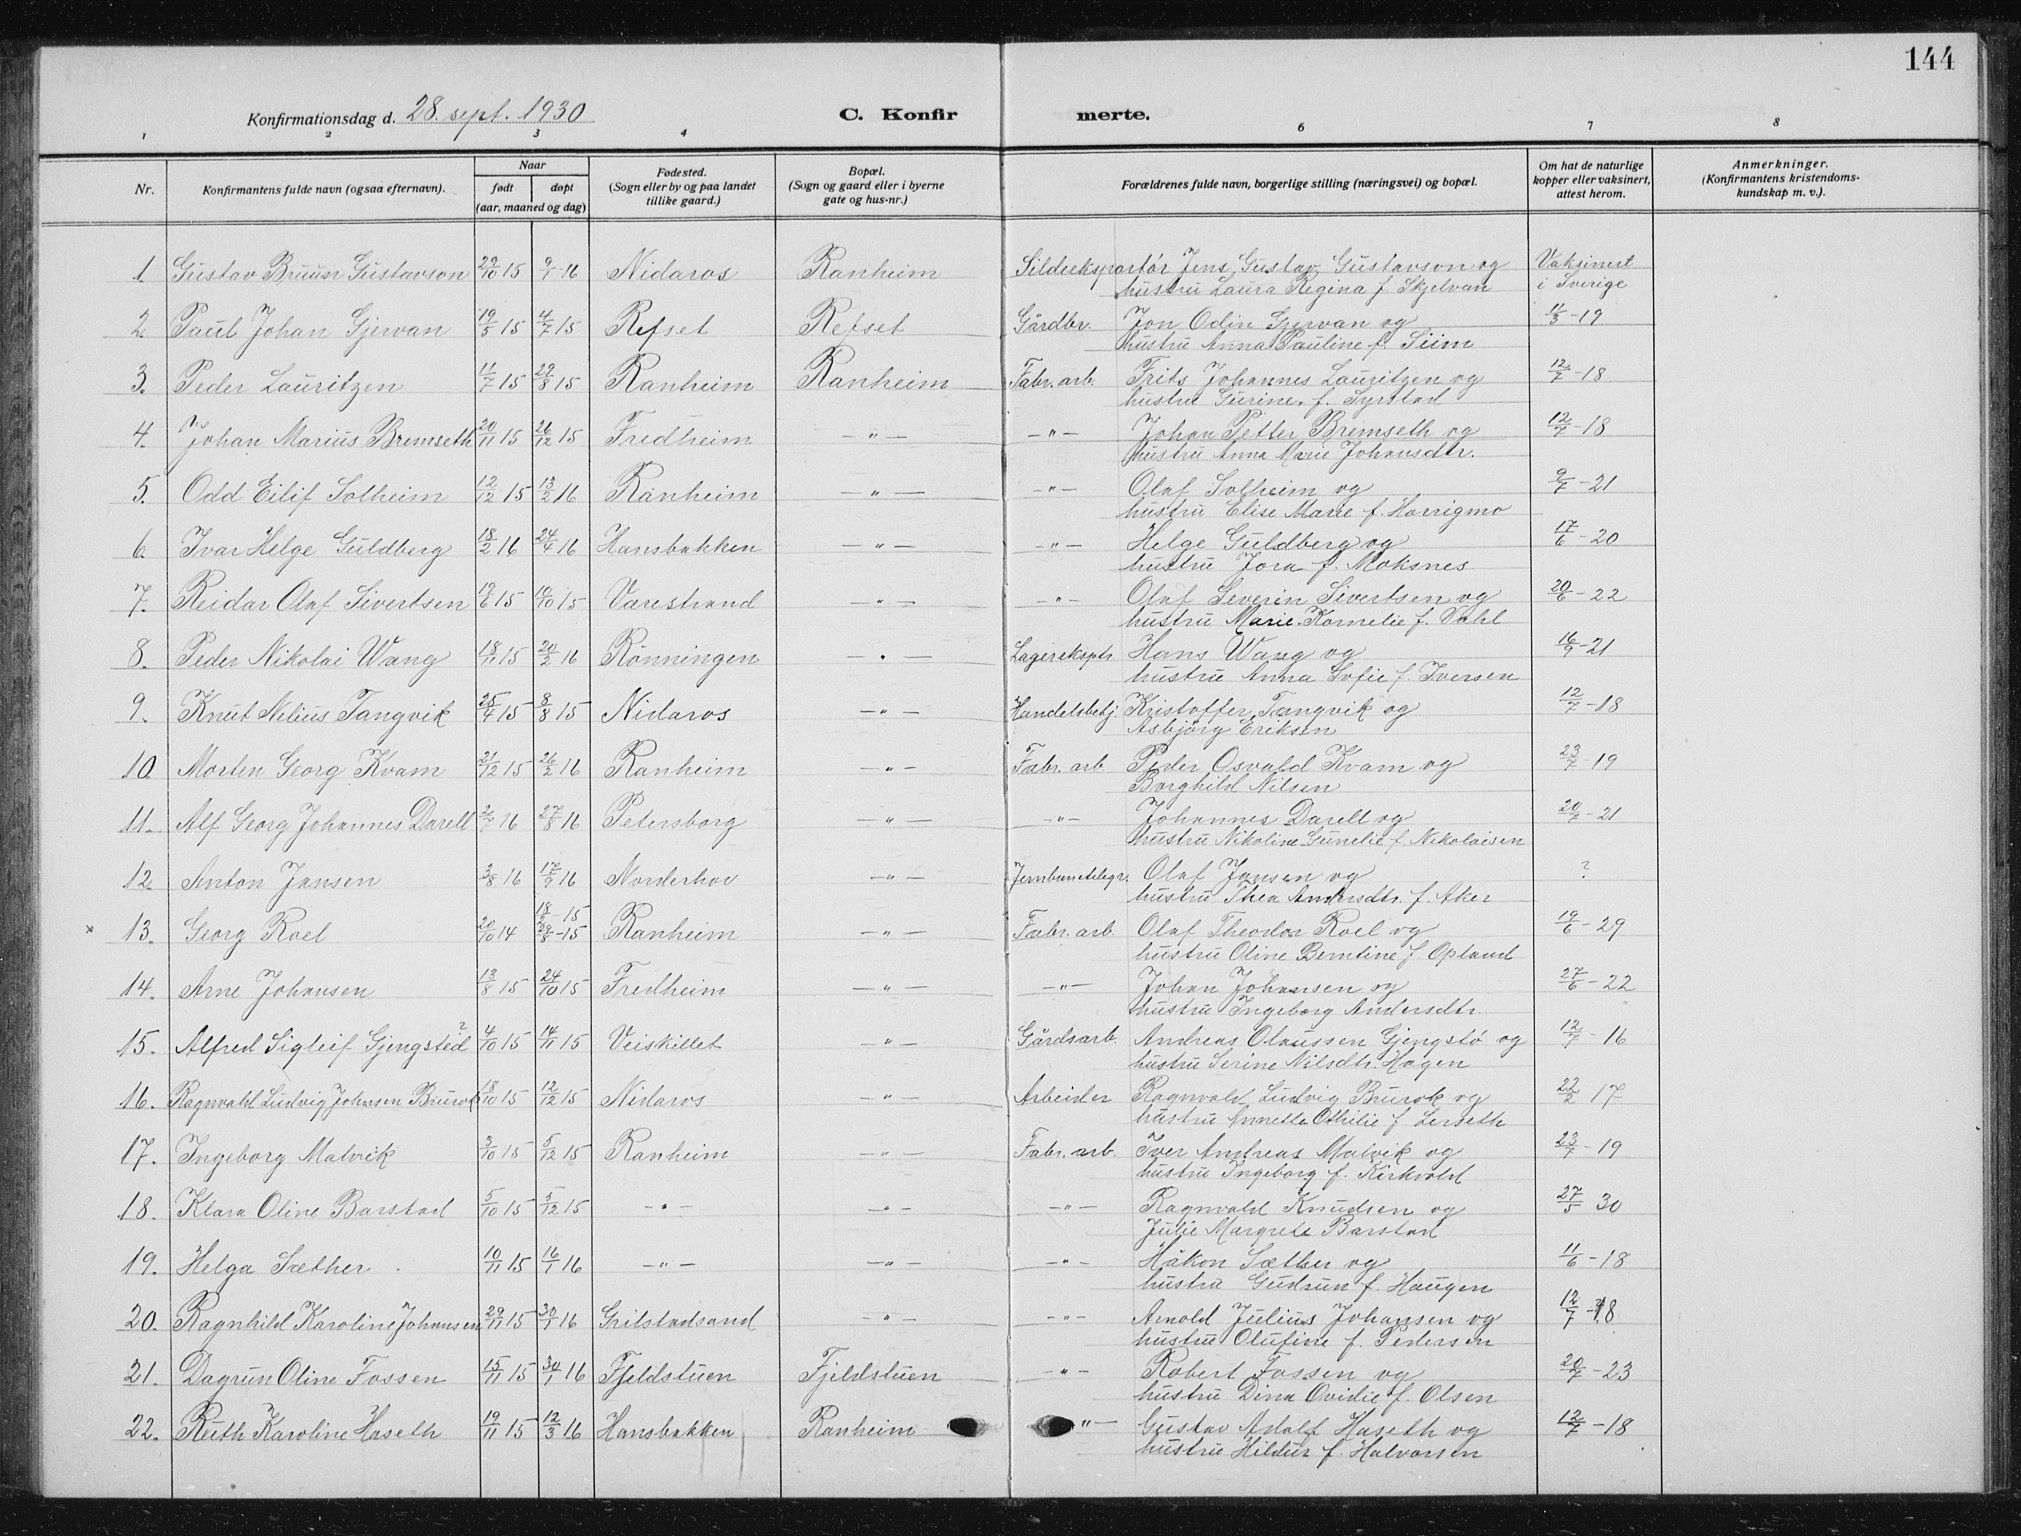 144
Konfirmationsdag d. 28. sept. 1930 C. Konfir merte.
1 2 3 4 5 6 7 8
Nr. Konfirmantens fulde navn (ogsaa efternavn). Naar født døpt (aar, maaned og dag) Fødested. (Sogn eller by og paa landet tillike gaard.) Bopæl. (Sogn og gaard eller i byerne gate og hus-nr.) Forældrenes fulde navn, borgerlige stilling (næringsvei) og bopæl. Om hat de naturlige kopper eller vaksinert, attest herom. Anmerkninger. (Konfirmantens kristendoms-kundskap m. v.).
1 Gustav Bruun Gustavson 29/10 15 9/1 16 Nidaros Ranheim Sildeeksportør Jens Gustav Gustavson og Vaksinert
hustru Laura Regina f. Skjelvan i Sverige
2 Paul Johan Gjervan 19/5 15 4/7 15 Refset Refset Gårdbr. Jon Odin Gjervan og 11/3 - 19
hustru Anna Pauline f. Siim
3. Peder Lauritzen 11/7 15 29/8 15 Ranheim Ranheim Fabr. arb. Frits Johannes Lauritzen og 12/7 - 18
hustru Gurine f. Syrstad
4. Johan Marius Bremseth 20/11 15 26/12 15 Fredheim — " — — " — Johan Petter Bremseth og 12/7 - 18
hustru Anna Marie Johansdtr.
5. Odd Eilif Solheim 12/12 15 13/2 16 Ranheim — " — — " — Olaf Solheim og 9/7 - 21
hustru Elise Marie f. Horrigmo
6. Ivar Helge Guldberg 18/2 16 24/4 16 Hansbakken — " — — " — Helge Guldberg og 17/6 - 20
hustru Jora f. Moksnes
7. Reidar Olaf Sivertsen 19/6 15 10/10 15 Varestrand — " — — " — Olaf Severin Sivertsen og 20/6 - 22
hustru Marie Kornelie f. Vahl
8. Peder Nikolai Wang 18/11 15 20/2 16 Rönningen — " — Lagerekspdr. Hans Wang og 16/9 - 21
hustru Anna Sofie f. Iversen
9. Knut Nelius Tangvik 25/4 15 8/8 15 Nidaros — " — Handelsbetj. Kristoffer Tangvik og 12/7 - 18
Asbjörg Eriksen
10. Morten Georg Kvam 21/12 15 26/2 16 Ranheim — " — Fabr. arb. Peder Osvald Kvam og 23/7 - 19
Borghild Nilsen
11. Alf Georg Johannes Darell 2/7 16 27/8 16 Petersborg — " — — " — Johannes Darell og 20/7 - 21
hustru Nikoline Gunelie f. Nikolaisen
12. Anton Jansen 3/8 16 17/9 16 Norderhov — " — Jernbanetelegr. Olaf Jansen og ?
hustru Thea Andersdtr. f. Aker
18/ - 15
x 13. Georg Roel 20/10 14 29/8 - 15 Ranheim — " — Fabr. arb. Olaf Theodor Roel og 19/6 - 29
hustru Oline Berntine f. Opland
14. Arne Johansen 13/8 15 24/10 15 Fredheim — " — — " — Johan Johansen og 27/6 - 22
hustru Ingeborg Andersdtr.
15. Alfred Sigleif Gjengsted ? 4/10 15 14/11 15 Veiskillet — " — Gårdsarb. Andreas Olaussen Gjengstø og 12/7 - 16
hustru Serine Nilsdtr. Hagen
16. Ragnvald Ludvig Johnsen Brurok 18/10 15 12/12 15 Nidaros — " — Arbeider Ragnvald Ludvig Brurok og 22/2 17
hustru Annette Othilie f. Lerseth
17. Ingeborg Malvik 3/10 15 5/12 15 Ranheim — " — Fabr. arb. Iver Andreas Malvik og 23/7 - 19
hustru Ingeborg f. Kirkvold
18. Klara Oline Barstad 5/10 15 5/12 15 — " — — " — — " — Ragnvald Knudsen og 27/5 30
Julie Margrete Barstad
19. Helga Sæther 10/11 15 16/1 16 — " — — " — — " — Håkon Sæther og 11/6 - 18
hustru Gudrun f. Haugen
20. Ragnhild Karoline Johansen 29/11 15 30/1 16 Grilstadsand — " — — " — Arnold Julius Johansen og 12/7 - 18
hustru Olufine f. Pedersen
21. Dagrun Oline Fossen 15/11 15 30/1 16 Fjeldstuen Fjeldstuen — " — Robert Fossen og 20/7 - 23
hustru Dina Ovidie f. Olsen
22. Ruth Karoline Haseth 19/11 15 12/3 16 Hansbakken Ranheim " — Gustav Adolf Haseth og 12/7 - 18
hustru Hildur f. Halvorsen